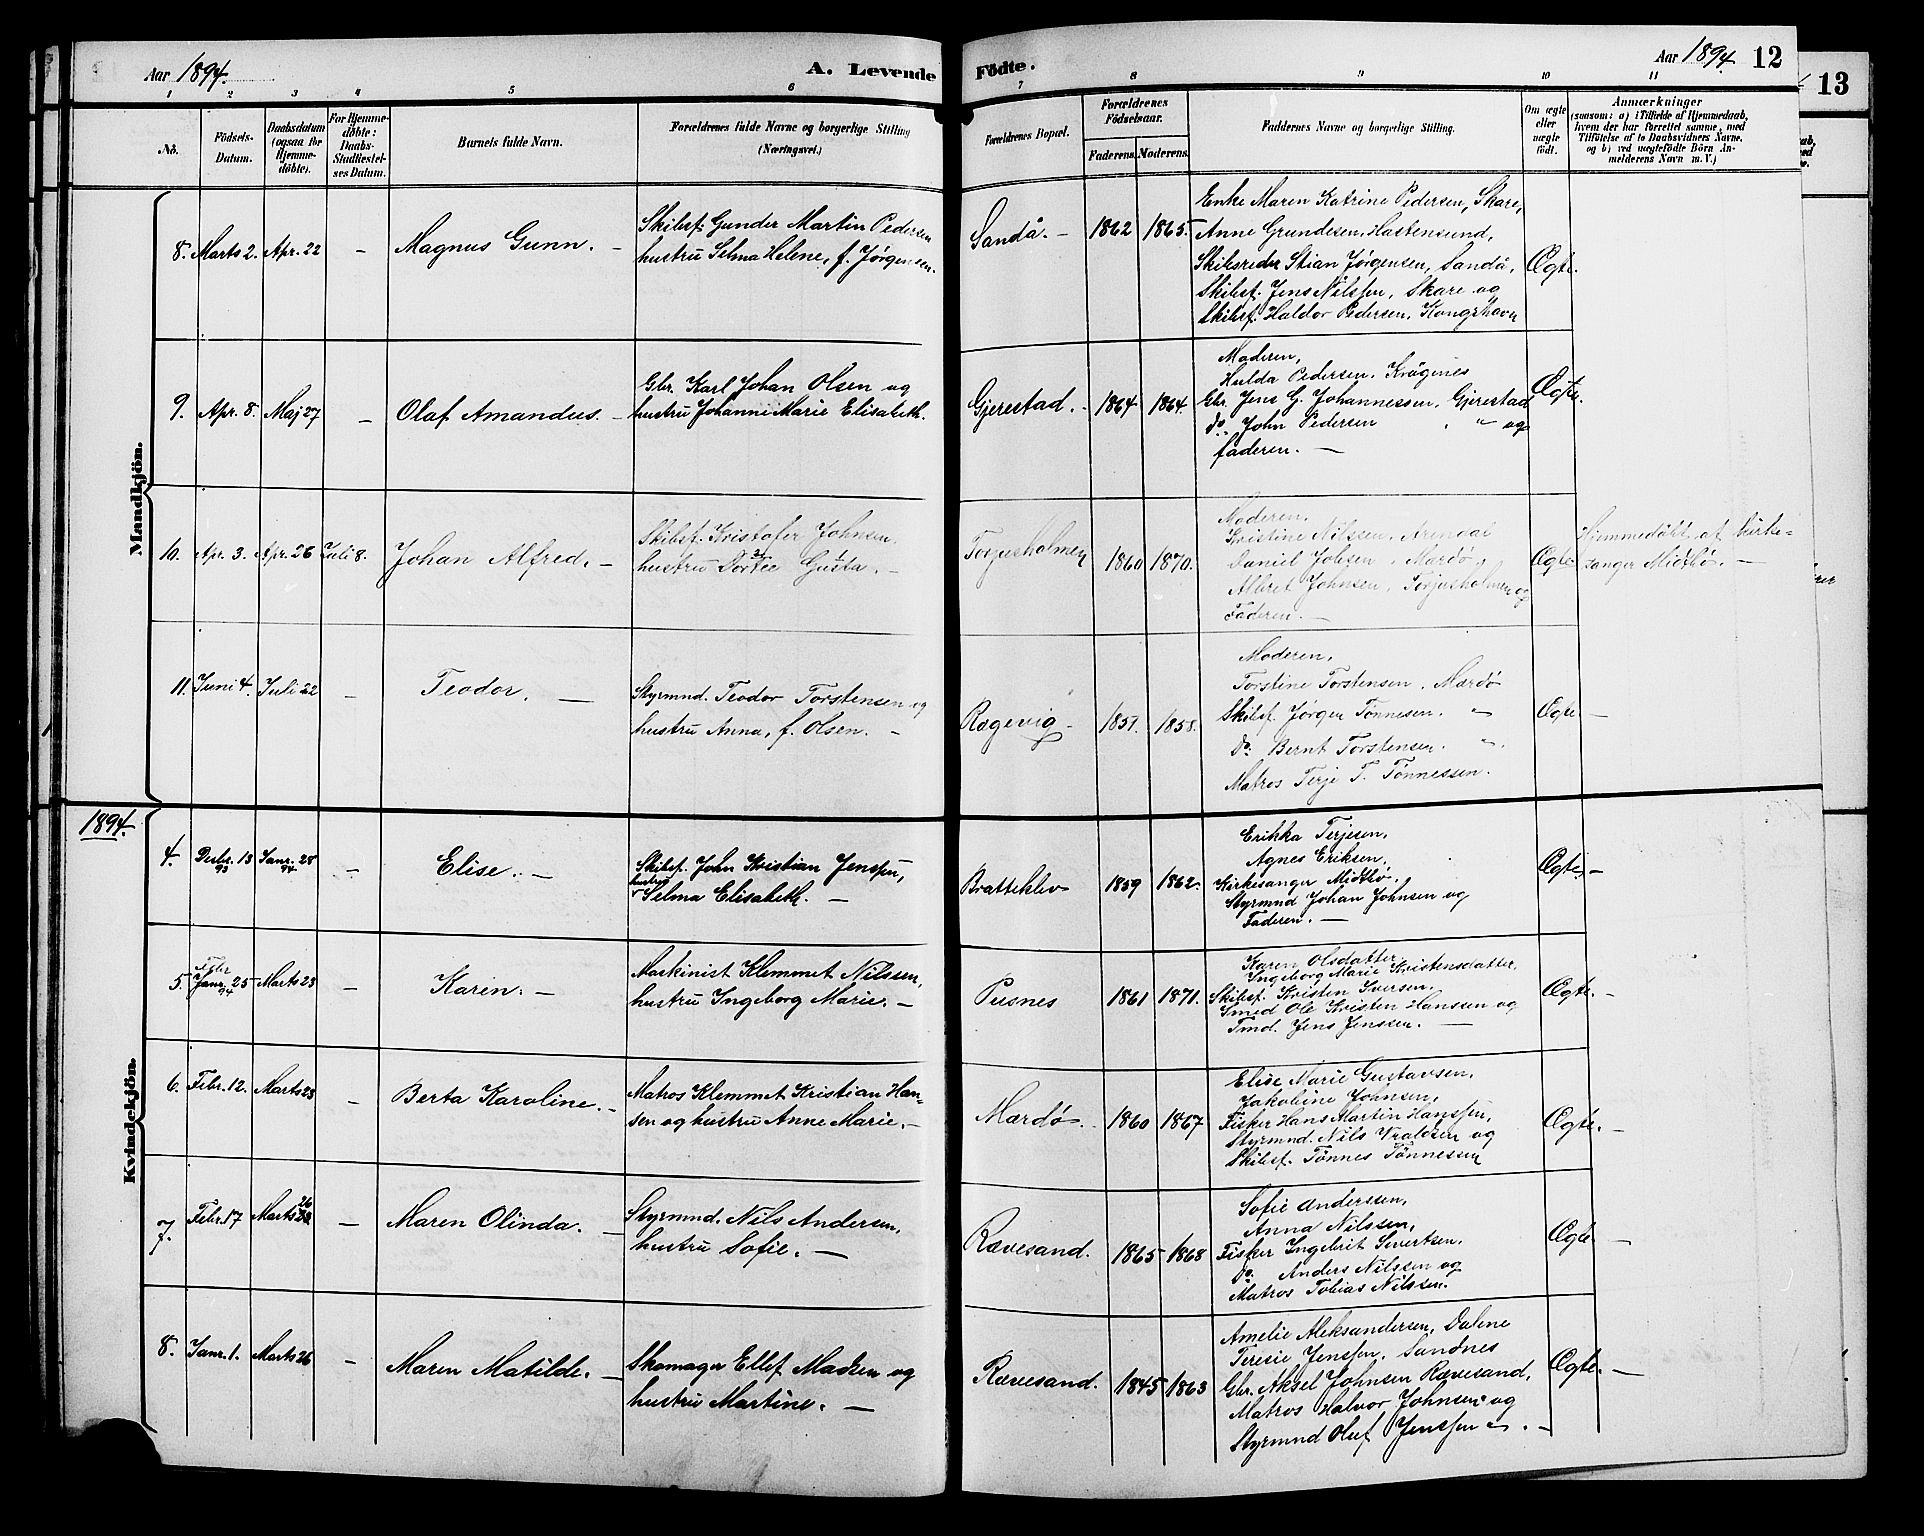 Aar 1894. A. Levende Fødte. Aar 1894. 12
13
1 2 3 4 5 6 7 8 9 10 11
No.
Fødsels-
Datum.
Daabsdatum
(ogsaa for
Hjemme-
døbte).
For Hjemme-
døbte:
Daabs-
Stadfæstel-
ses Datum.
Barnets fulde Navn.
Forældrenes fulde Navne og borgerlige Stilling
(Næringsvei.)
Forældrenes Bopæl.
Forældrenes
Fødselsaar.
Faderens. Moderens.
Faddernes Navne og borgerlige Stilling.
Om ægte
eller
uægte
født.
Anmærkninger
(saasom: a) i Tilfælde af Hjemmedaab,
hvem der har forrettet samme, med
Tilføielse af to Daabsvidners Navne,
og b) ved uægtefødte Børn An-
melderens Navn m. V.)
Mandkjøn.
8. Marts 2. Apr. 22 — Magnus Gunn. —
Skibsf. Gunder Martin Pedersen
hustru Selma Helene, f. Jørgensen.
Sandå. — 1862 1865.
Enke Maren Katrine Pedersen, Skare,
Anne Grundesen, Hastensund,
Skibsreder Stian Jørgensen, Sandå,
Skibsf. Jens Nilssen, Skare og
Skibsf. Haldor Pedersen, Kongshavn
Ægte.
9. Apr. 8. Maj 27 — Olaf Amandus. —
Gbr. Karl Johan Olsen og
hustru Johanne Marie Elisabeth.
Gjerestad. 1864 1864.
Moderen,
Hulda Pedersen, Krågenes
Gbr. Jens G. Johannessen, Gjerestad
do. John Pedersen " og
faderen. —
Ægte.
10. Apr. 3. Apr. 26 Juli 8. Johan Alfred. —
Skibsf. Kristofer Johnsen,
hustru Dortea Gusta. —
Torjusholmen 1860 1870.
Moderen,
Kristine Nilssen, Arendal
Daniel Jobsen, Mærdø,
Albret Johnsen, Torjusholmen og
Faderen. —
Ægte
Hjemmedøbt af kirke-
sanger Midtbø. —
11. Juni 4. Juli 22 — Teodor. —
Styrmnd. Teodor Torstensen og
hustru Anna, f. Olsen. —
Rægevig — 1857. 1858.
Moderen,
Torstine Torstensen, Mærdø
Skibsf. Jørgen Tønnesen. "
do. Bernt Torstensen. "
Matros Terje T. Tønnessen.
Ægte —
1894.
Kvindekjøn.
4. Decbr. 13 93 Janr. 28 94 — Elise. —
Skibsf. John Kristian Jenssen,
hustru
Selma Elisabeth. —
Bratteklev 1859 1862.
Erikka Terjesen,
Agnes Eriksen,
Kirkesanger Midtbø,
Styrmnd Johan Johnsen og
Faderen. —
Ægte. —
5. Febr Janr. 25 94 Marts 23 — Karen. —
Maskinist Klemmet Nilssen,
hustru Ingeborg Marie. —
Pusnes 1861 1871.
Karen Olsdatter,
Ingeborg Marie Kristensdatter,
Skibsf. Kristen Iversen,
Smed Ole Kristen Hanssen og
Tmd. Jens Jenssen. —
Ægte. —
6. Febr. 12. Marts 23 — Berta Karoline. —
Matros Klemmet Kristian Han-
sen og hustru Anne Marie. —
Mærdø. 1860 1867
Elise Marie Gustavsen,
Jakobine Johnsen,
Fisker Hans Martin Hanssen,
Styrmnd. Nils Vraldsen og
Skibsf. Tønnes Tønnessen
Ægte. —
7. Febr. 17 Marts 26 — Maren Olinda. —
Styrmnd. Nils Andersen,
hustru Sofie. —
Rævesand. 1865 1868
Sofie Anderssen,
Anna Nilssen,
Fisker Ingebrit Sivertsen,
do. Anders Nilssen og
Matros Tobias Nilssen.
Ægte —
8. Janr. 1. Marts 26 — Maren Matilde. —
Skomager Ellef Madsen og
hustru Martine. —
Rævesand. 1845 1863
Amelie Aleksandersen, Dalene
Teresie Jenssen, Sandnes
Gbr. Aksel Johnsen Rævesand,
Matros Halvor Johnsen " og
Styrmnd Oluf Jenssen ". —
Ægte. —